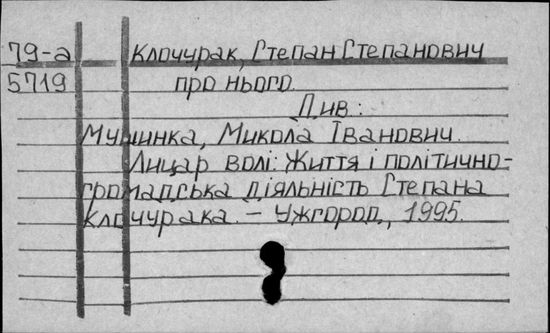 79-а Клочурак, Степан Степанович
5719 про нього.
Див.:
Мушинка, Микола Іванович.
Лицар волі: Життя і політично-
громадська діяльність Степана
Клочурака. – Ужгород, 1995.